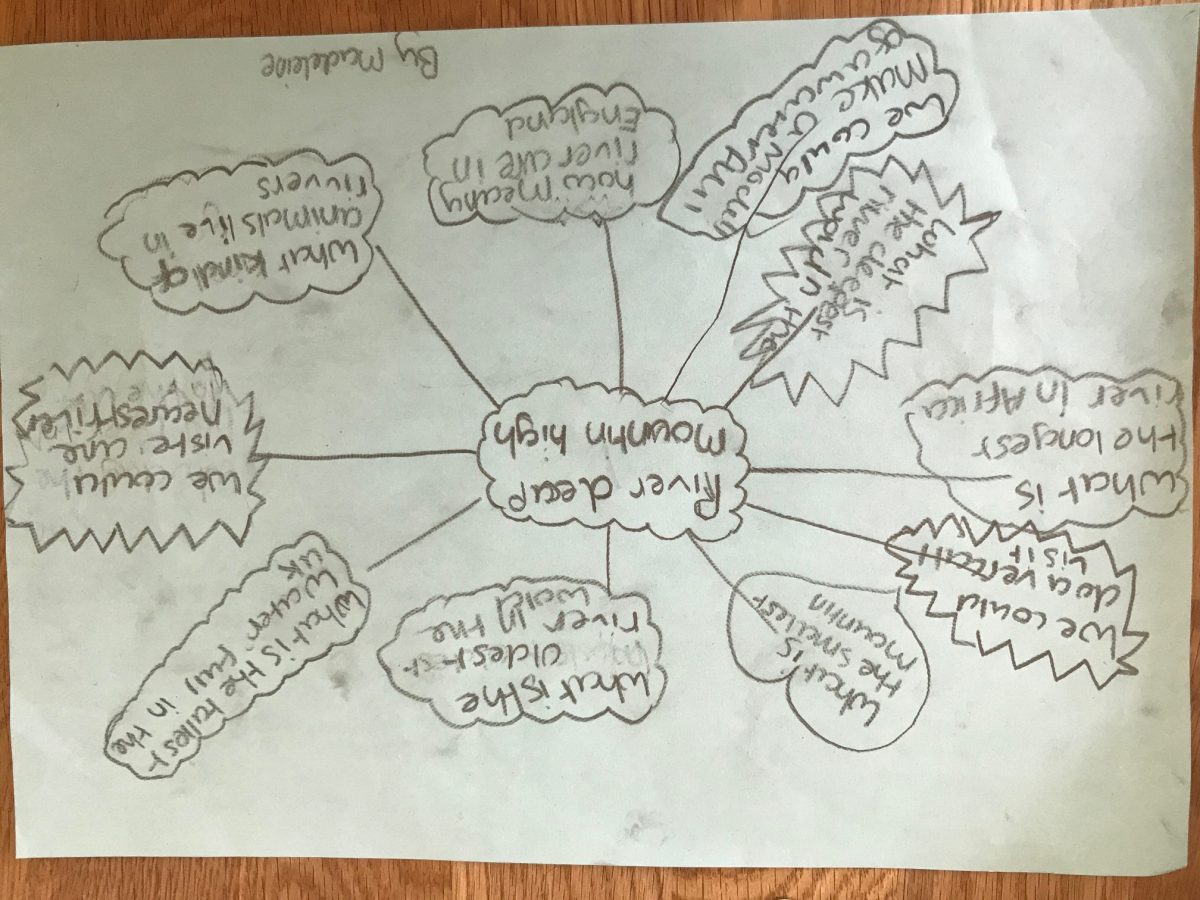 What is
the smallest
mountin
What is the
oldest
river in the
would
What is the tallest
water full in the
uk
We could
do a
visit
What is
the longest
river in Africa
River deap
mountin high
We could
viste are
nearest river
What is
the deepest
river
in the
We could
make a modell
of a waterfall
how meany
river are in
England
What kind of
animals live in
rivers
By Madeleine